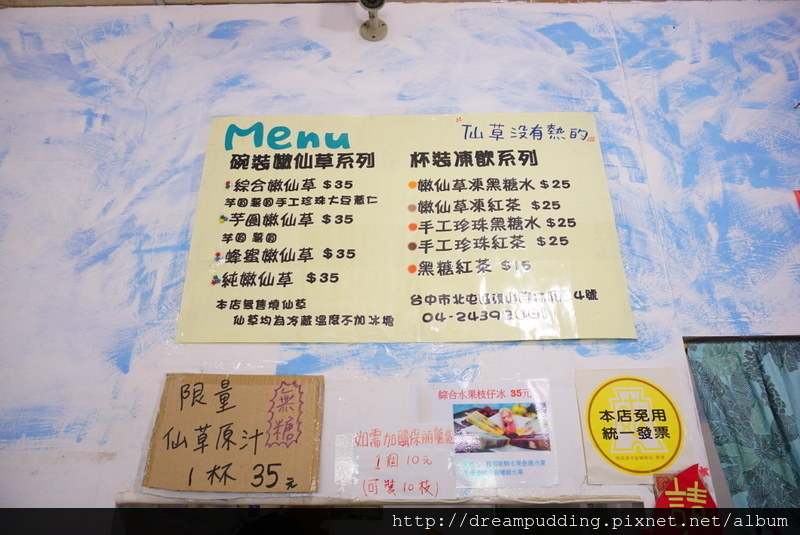 Menu
"仙草沒有熱的"
碗裝嫩仙草系列
綜合嫩仙草 $35
芋圓 薯圓 手工珍珠 大豆 薏仁
芋圓嫩仙草 $35
芋圓 薯圓
蜂蜜嫩仙草 $35
純嫩仙草 $35
本店無售燒仙草
仙草均為冷藏溫度不加冰塊
杯裝凍飲系列
嫩仙草凍黑糖水 $25
嫩仙草凍紅茶 $25
手工珍珠黑糖水 $25
手工珍珠紅茶 $25
黑糖紅茶 $15
台中市北屯區 4號
04-2439
限量
無糖
仙草原汁
1杯 35元
如需加購保麗龍盒
1個10元
(可裝10枝)
綜合水果枝仔冰 35元
本店免用
統一發票
請
http://dreampudding.pixnet.net/album